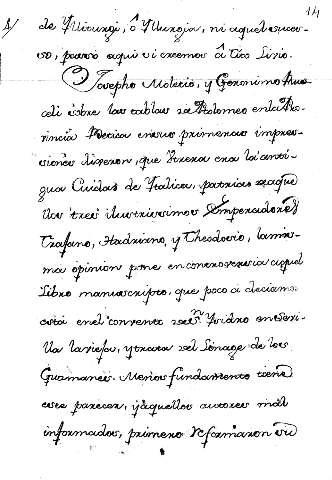 14
de Yliturgi, ô Yliturgia, ni aquel suces-
so, passó aqui si creemos á Tito Livio.
Josepho Moletio, y Geronimo Rus-
celi sobre las tablas de Ptolomeo en la Pro-
vincia Betica en sus primeras impres-
siones dixeron, que Utrera era la anti-
gua Ciudad de Ytalica, patria de aque
llos tres ilustrissimos Emperadores
Trajano, Hadriano, y Theodosio, la mis-
ma opinion pone en controversia aquel
Libro manuscripto, que poco a deciamos
está en el convento de Sn Ysidro en Sevi-
lla la vieja, y trata del Linage de los
Guzmanes. Menos fundamento tiene
este parecer, y aquellos autores mal
informados, primero reformaron su